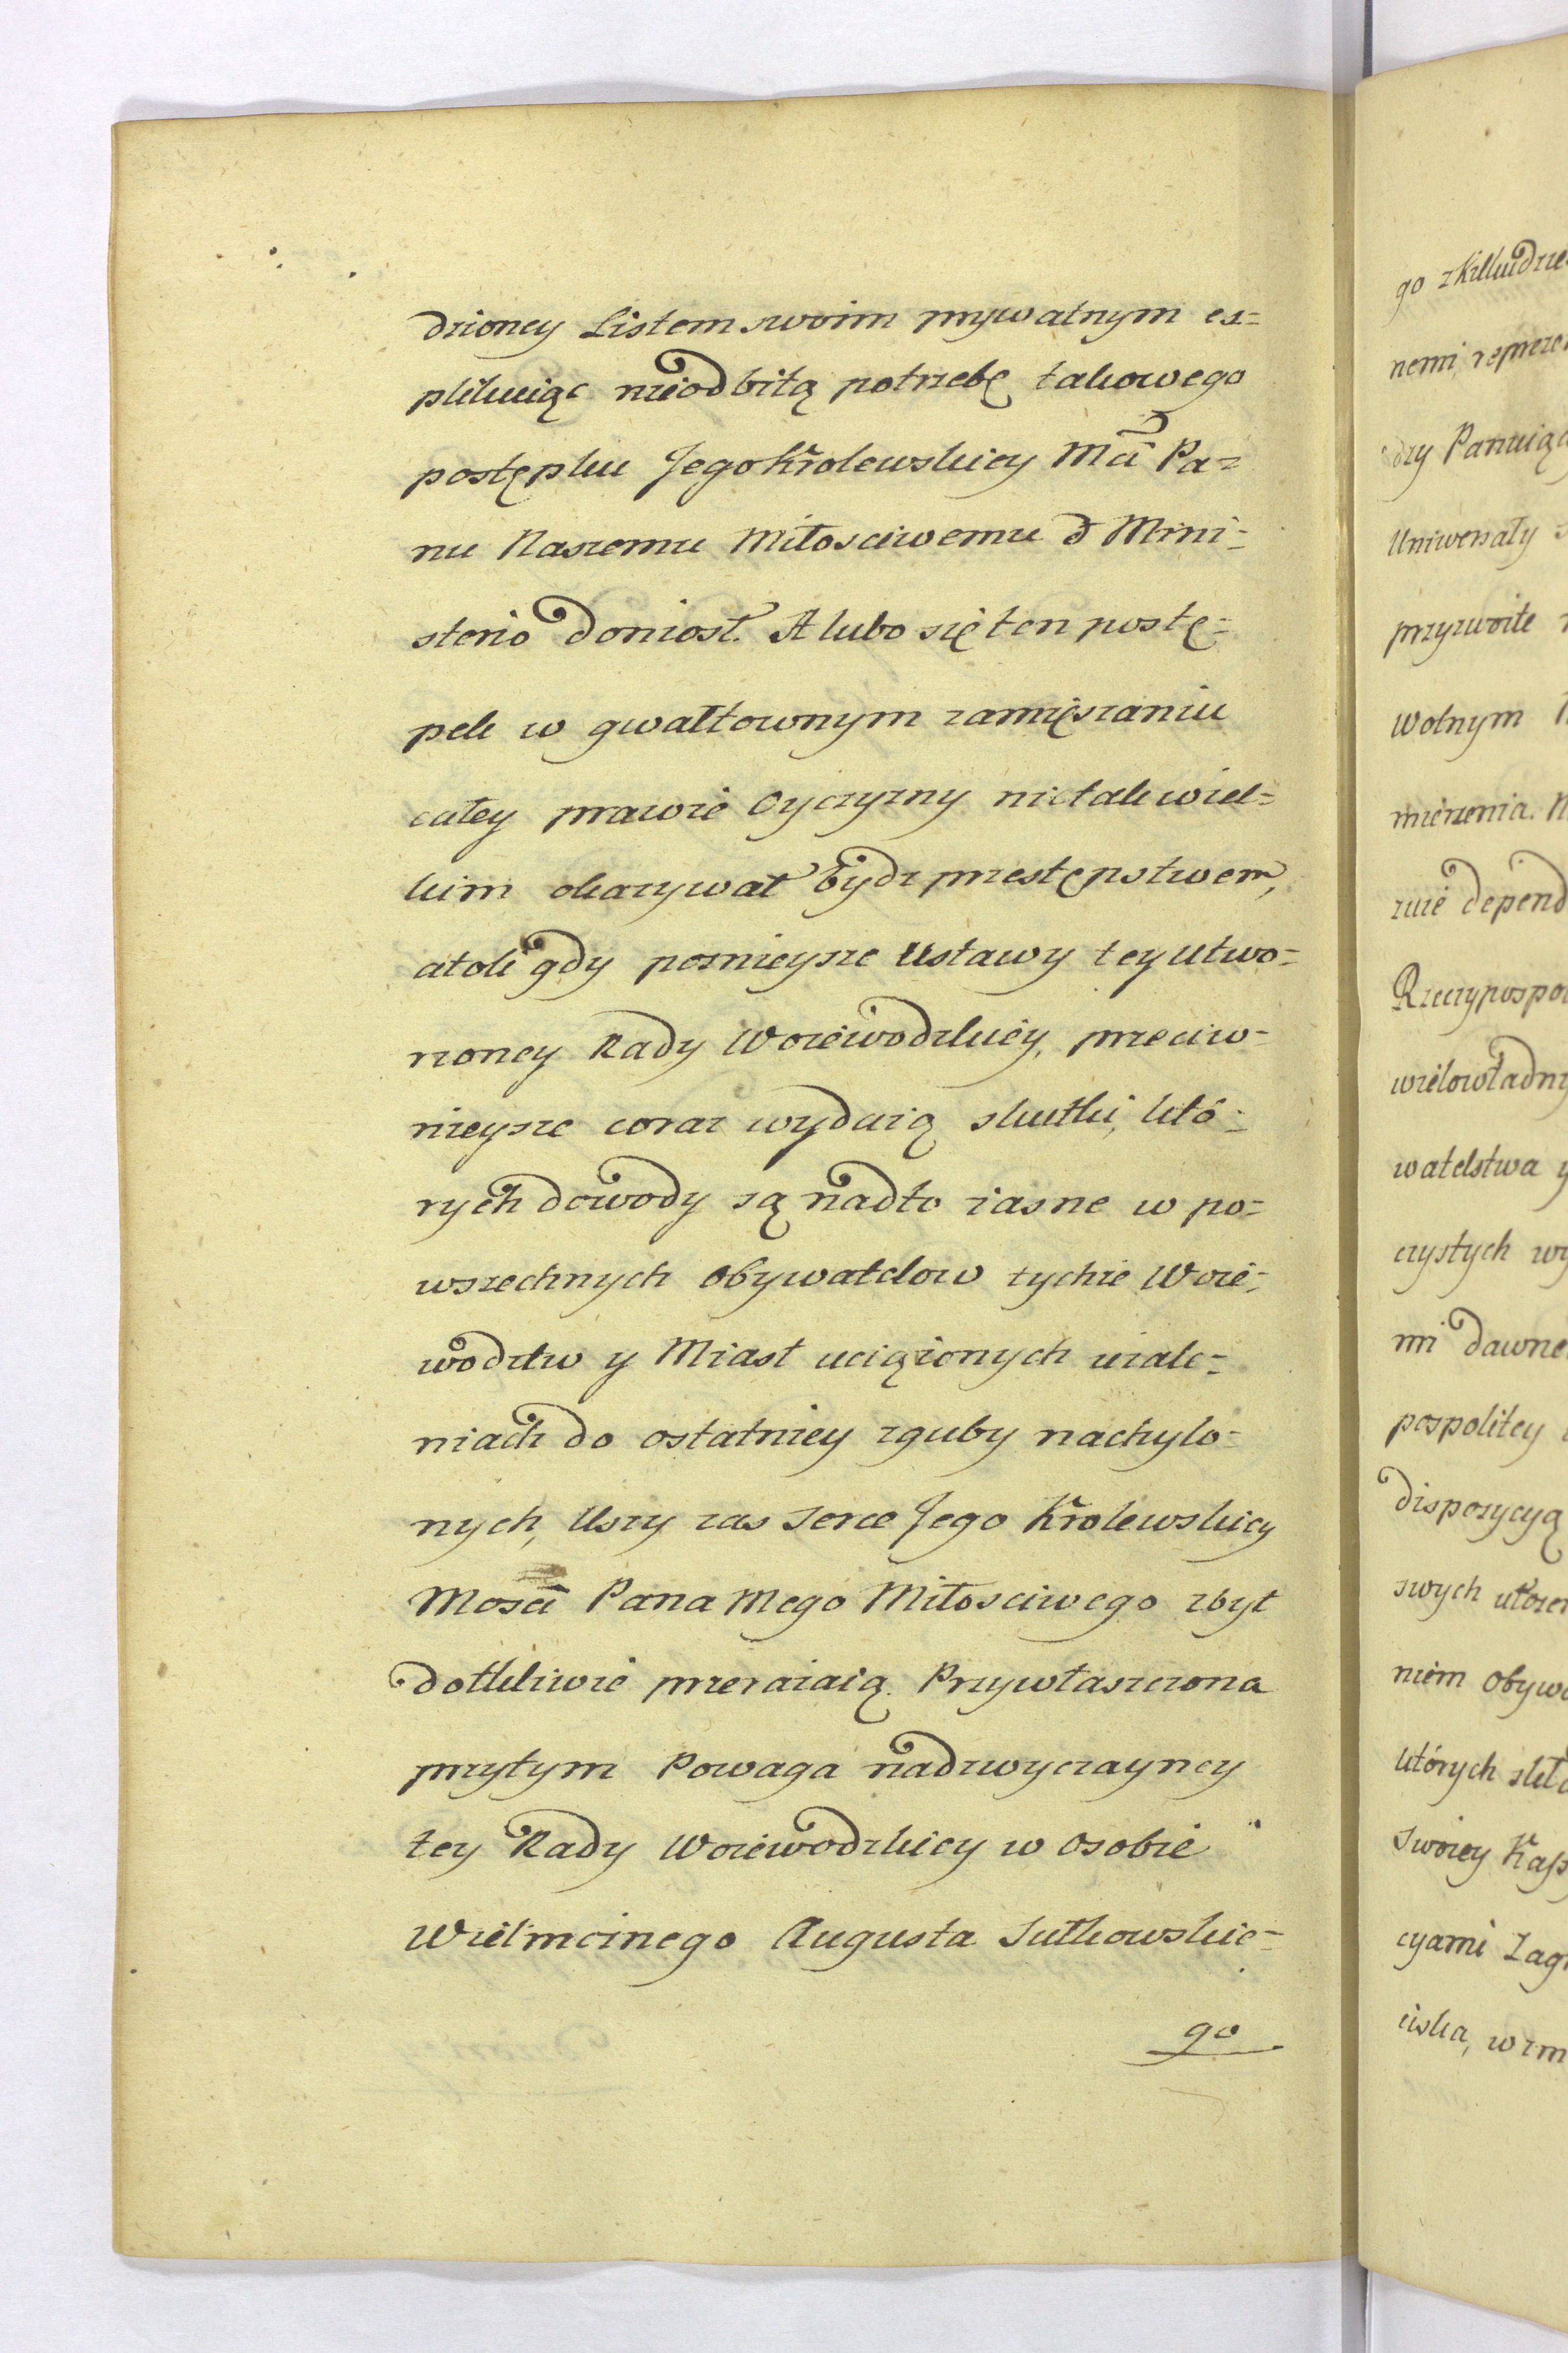 dzioney Listem swoim prywatnym ex=
plikuiąc nieodbitą potrzebę takowego
postępku Jego Krolewskiey Mci Pa=
nu Naszemu Miłosciwemu & Mini=
sterio doniosł. A lubo się ten postę=
pek w gwałtownym zamięszaniu
całey prawie Oyczyzny nietak wiel=
kim okazywał bydz przestępstwem,
atoli gdy poznieysze Ustawy tey utwo=
rzoney Rady Woiewodzkiey, przeciw=
nieysze coraz wydaią skutki, któ=
rych dowody są nadto iasne w po=
wszechnych Obywatelow tychże Woie=
wodztw y Miast uciążonych użale=
niach do ostatniey zguby nachylo=
nych, Uszy zas Serce Jego Krolewskiey
Mosci Pana Mego Miłosciwego zbyt
dotkliwie przerażaią. Przywłaszczona
przytym Powaga nadzwyczayney
tey Rady Woiewodzkiey w Osobie
Wielmcinego Augusta Sułkowskie=
go
go zkilkudzie
nemi, reprezen
dry Panuiąc
Uniwersały
przyzwoite
wolnym
mierzenia.
znie depend
Rzeczypospol
wielowładny
watelstwa y
czystych wy
mi dawne
pospolitey
disposycyą
swych ułożen
niem Obywa
których skła
Swoiey Kass
cyami Zagr
ciska, wzm